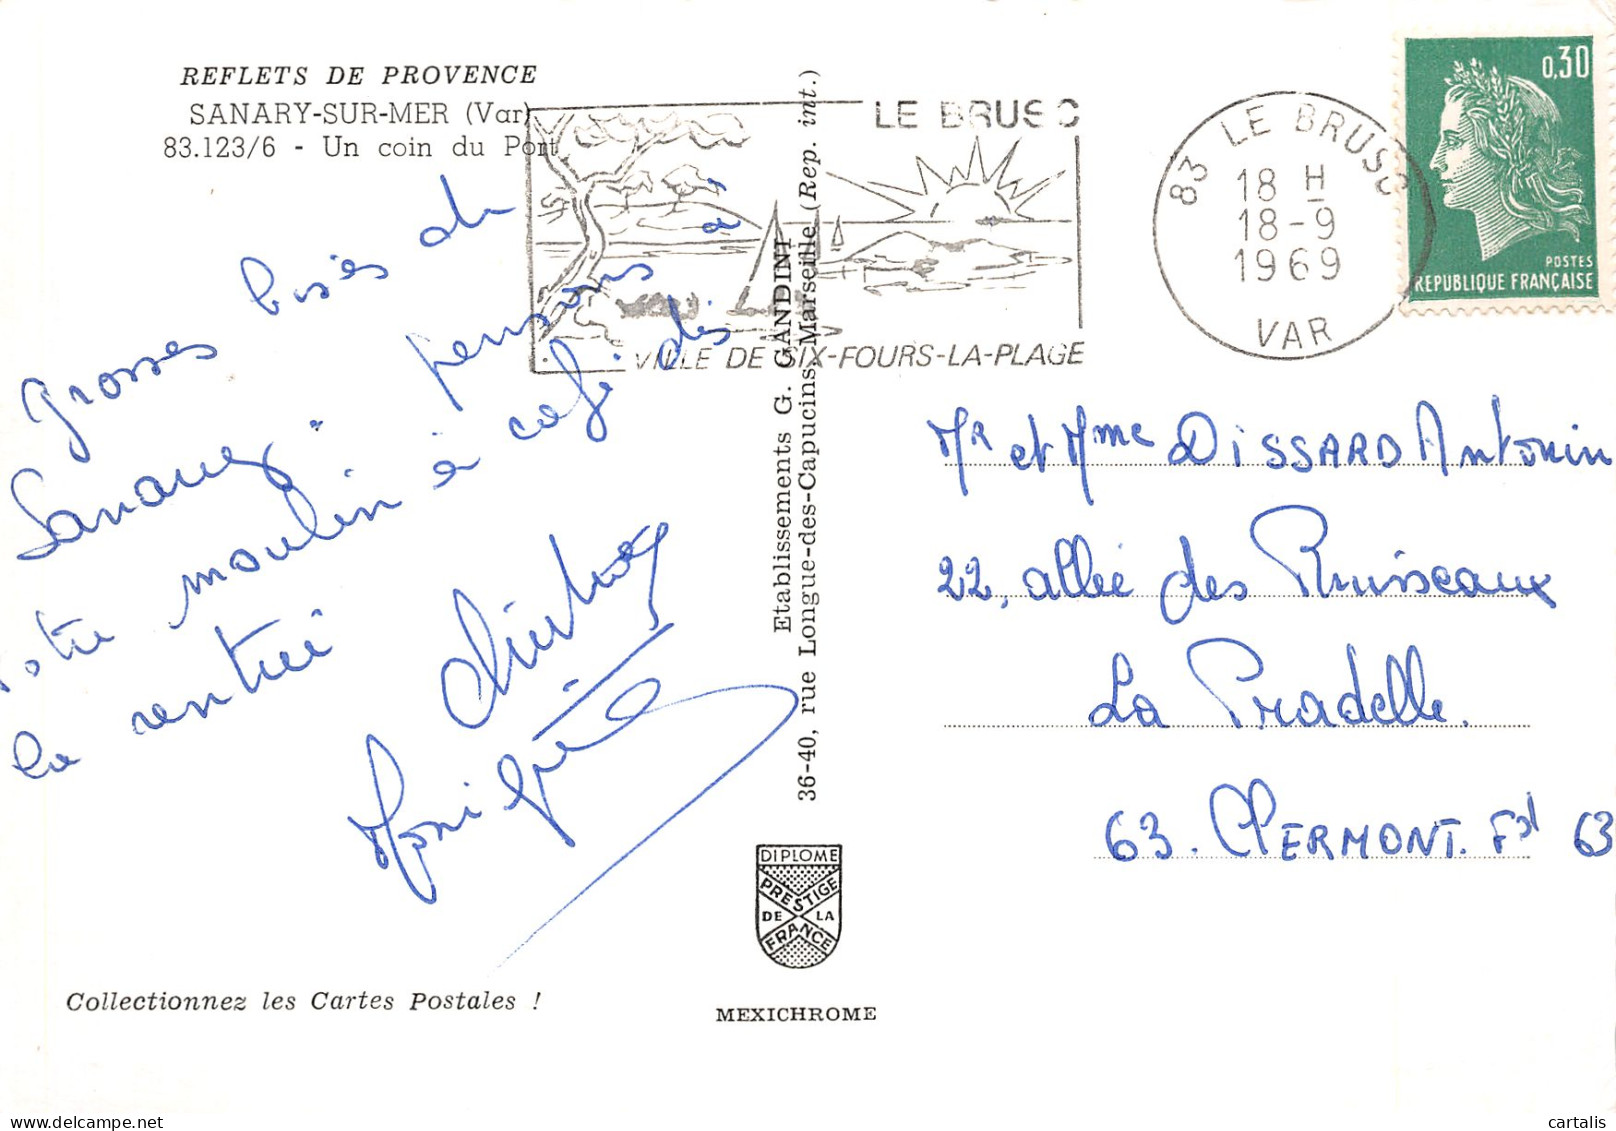 REFLETS DE PROVENCE
SANARY-SUR-MER (Var)
83.123/6 - Un coin du Port
Grosses bises de
Sanary pensons à
votre moulin à café dès
la rentrée
Monique
Etablissements G. GANDINI
36-40, rue Longue-des-Capucins, Marseille (Rep. int.)
DIPLOME
PRESTIGE
DE LA
FRANCE
MEXICHROME
Collectionnez les Cartes Postales !
LE BRUSC
VILLE DE SIX-FOURS-LA-PLAGE
83 LE BRUSC
18 H
18-9
1969
VAR
0,30
POSTES
REPUBLIQUE FRANÇAISE
Mr et Mme DISSARD Antonin
22, allée des Ruisseaux
La Pradelle.
63. CLERMONT. Fd 63
cartalis